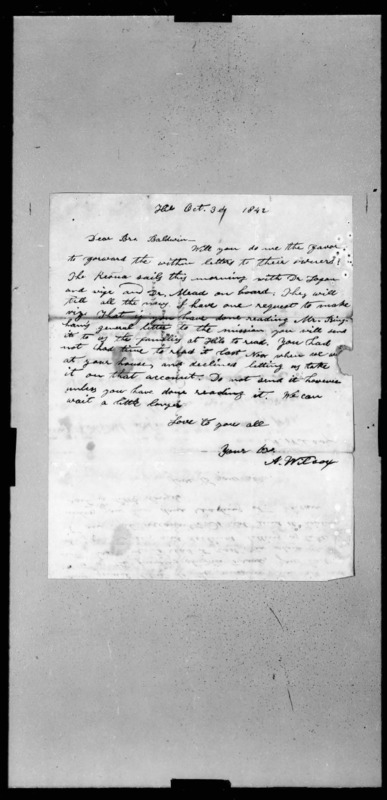 Hilo Oct. 3d 1842
Dear Bro Baldwin
Will you do me the favor
to forward the within letters to their owners?
The sails this morning with Dr.
and wife and Dr. on board. They will
tell all the news. I have one request to make
viz. That if you have done reading Mr. Bing-
ham's general letter to the mission you will send
it to us the families at Hilo to read. You had
not had time to read it last Nov when we were
at your house, and declined letting us take
it on that account. Do not send it however
unless you have done reading it. We can
wait a little longer
Love to you all
Your Bro
A. Wilcox